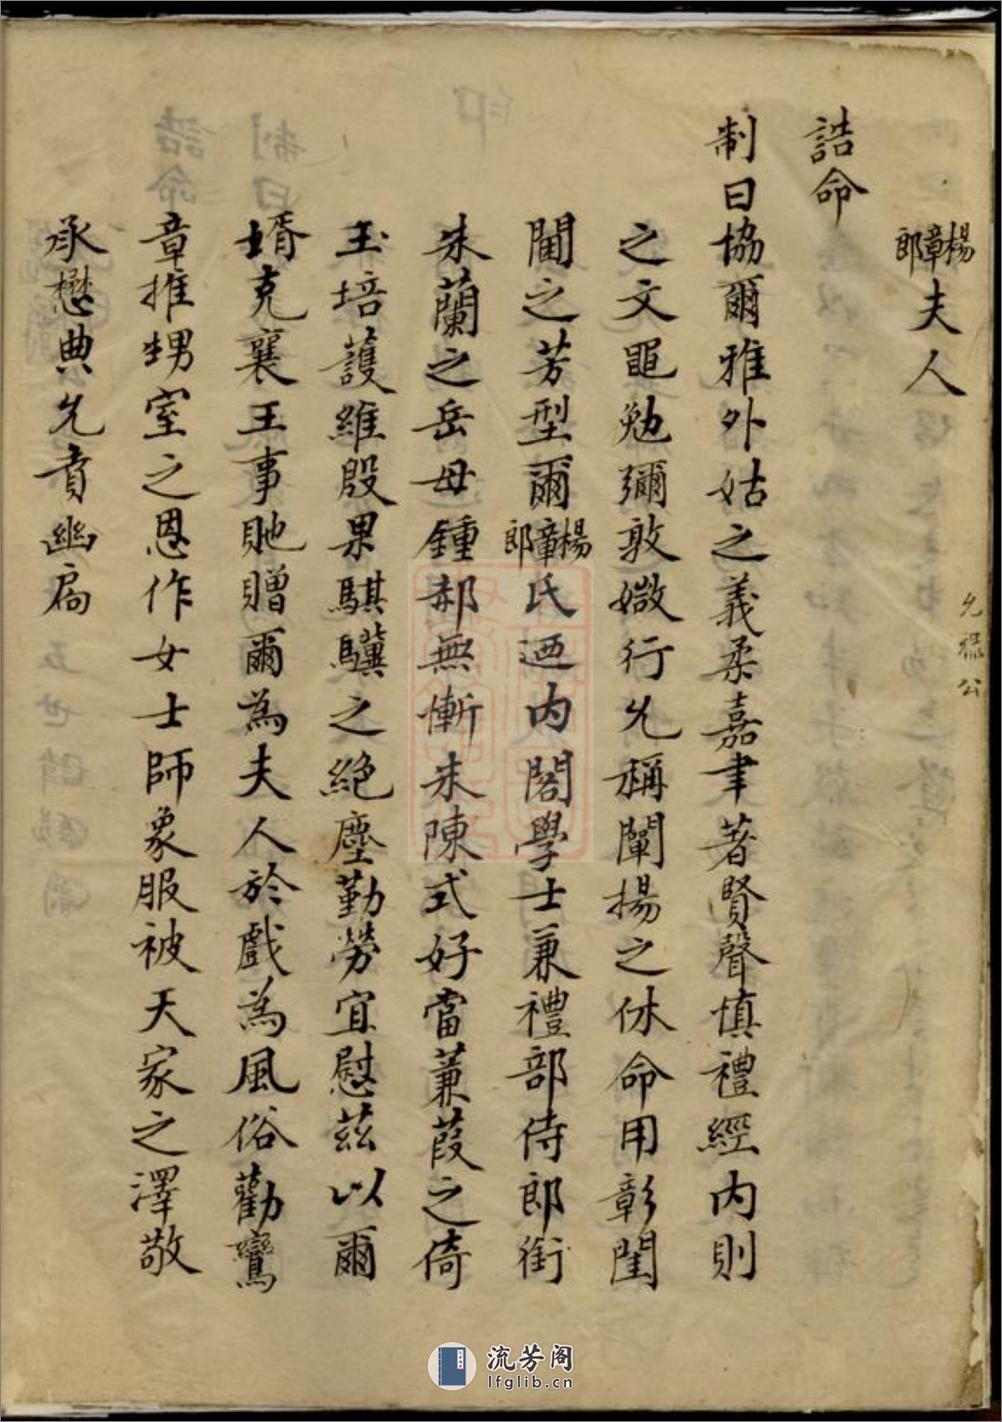 楊章郎夫人
允禔公
誥命
制曰協爾雅外姑之義柔嘉聿著賢聲慎禮經內則
之文黽勉彌敦媺行允稱闡揚之休命用彰閨
閫之芳型爾楊章郎氏迺內閣學士兼禮部侍郎銜
朱蘭之岳母鍾郝無慚朱陳式好當蒹葭之倚
玉培護維殷果騏驥之絕塵勤勞宜慰茲以爾
壻克襄王事貤贈爾為夫人於戲為風俗勸鸞
章推甥室之恩作女士師象服被天家之澤敬
承懋典允賁幽扃
流芳阁
lfglib.cn